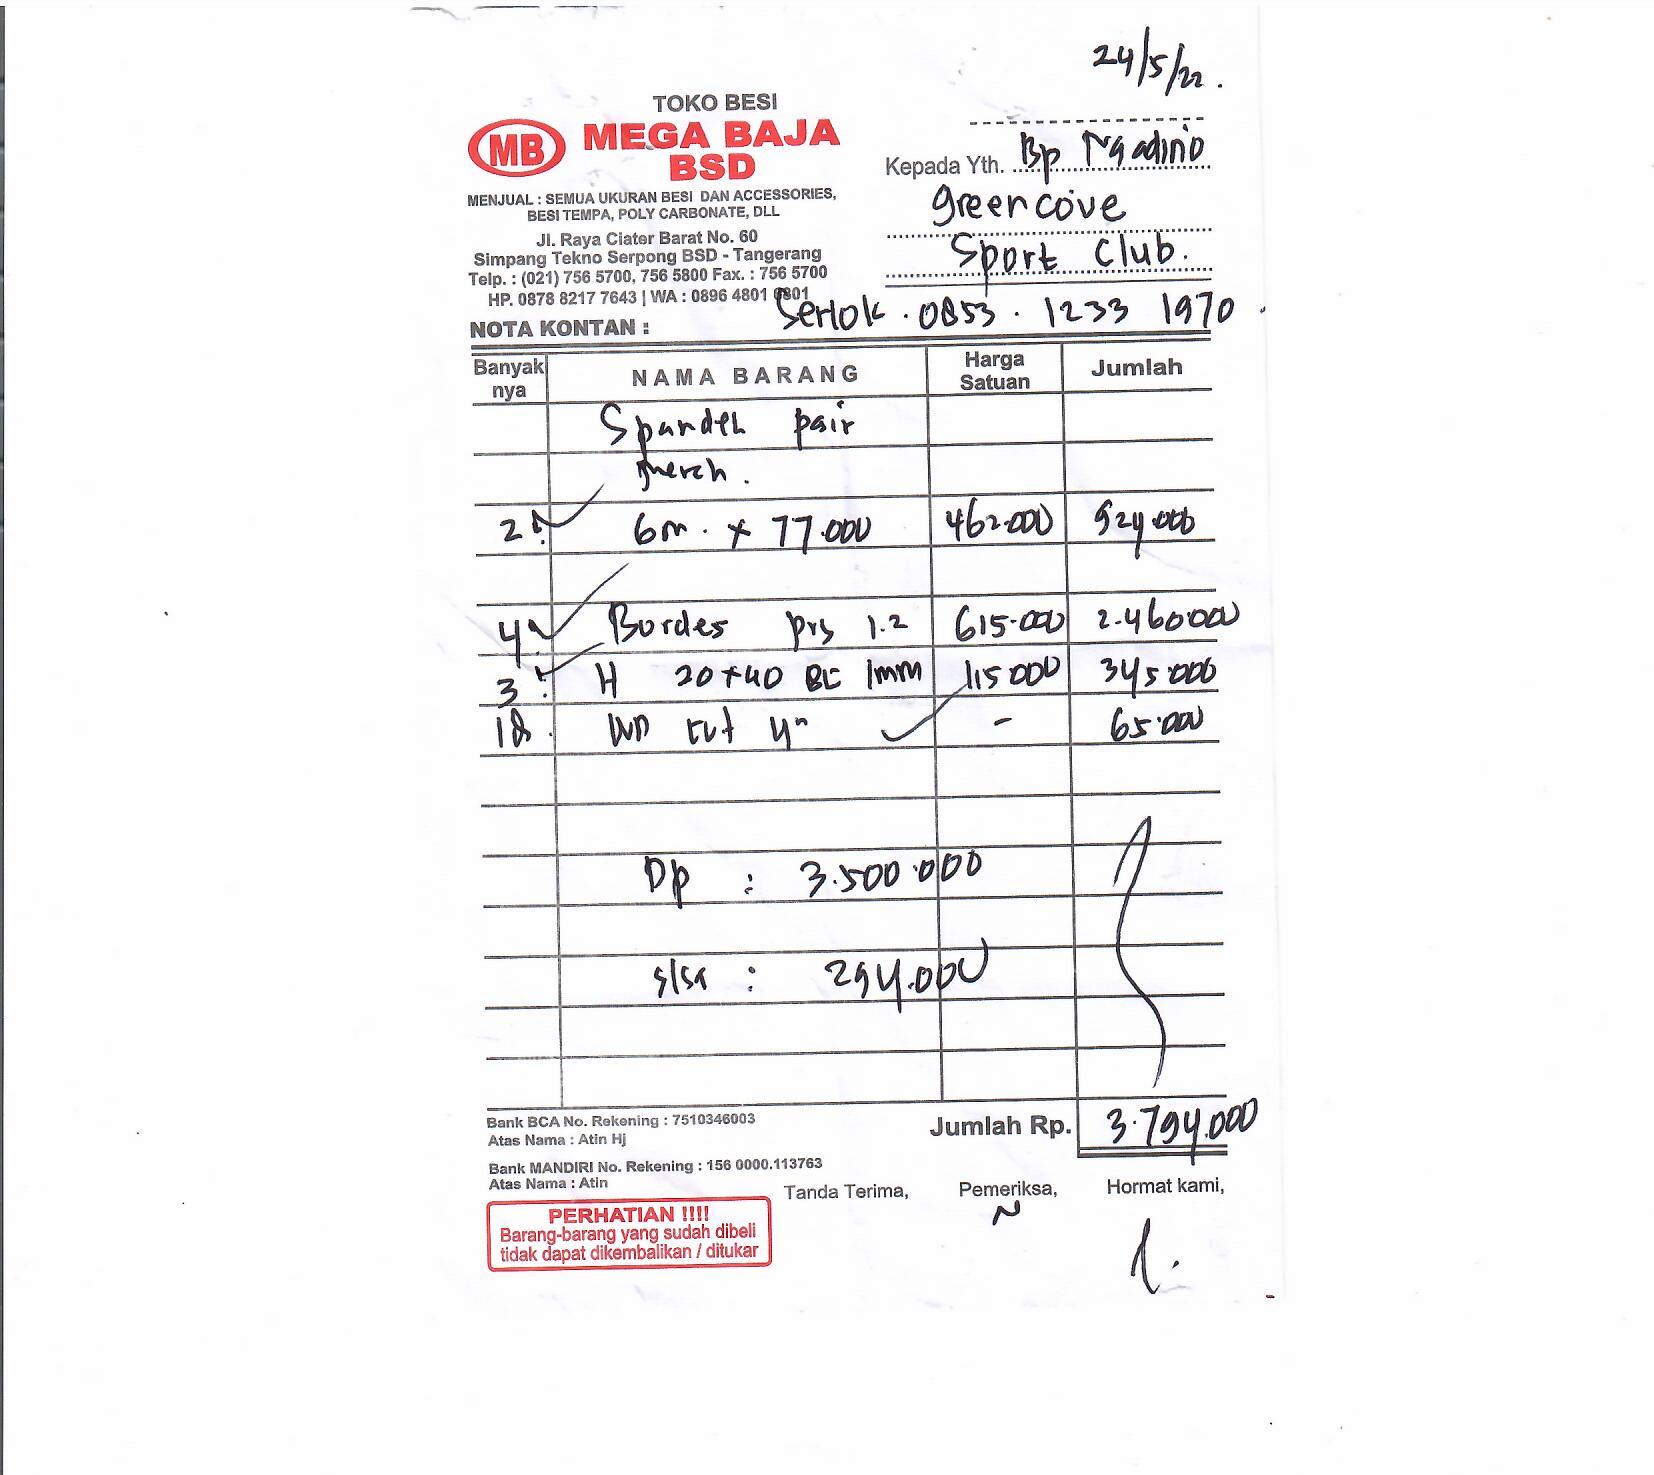 24/5/22.
TOKO BESI
MB MEGA BAJA
BSD
MENJUAL : SEMUA UKURAN BESI DAN ACCESSORIES,
BESI TEMPA, POLY CARBONATE, DLL
Jl. Raya Ciater Barat No. 60
Simpang Tekno Serpong BSD - Tangerang
Telp. : (021) 756 5700, 756 5800 Fax. : 756 5700
HP. 0878 8217 7643 | WA : 0896 4801 0801
Kepada Yth. Bp Ngadino
greencove
Sport Club.
Serlok . 0853 . 1233 1970 .
NOTA KONTAN :
Banyak nya NAMA BARANG Harga Satuan Jumlah
Spandek pasir
merah.
2 6m . x 77.000 462.000 924.000
4 Bordes prs 1.2 615.000 2.460.000
3 H 20+40 1mm 115.000 345.000
cut 4" - 65.000
Dp : 3.500.000
sisa : 294.000
Jumlah Rp. 3.794.000
Bank BCA No. Rekening : 7510346003
Atas Nama : Atin Hj
Bank MANDIRI No. Rekening : 156 0000.113763
Atas Nama : Atin
Tanda Terima, Pemeriksa, Hormat kami,
PERHATIAN !!!!
Barang-barang yang sudah dibeli
tidak dapat dikembalikan / ditukar